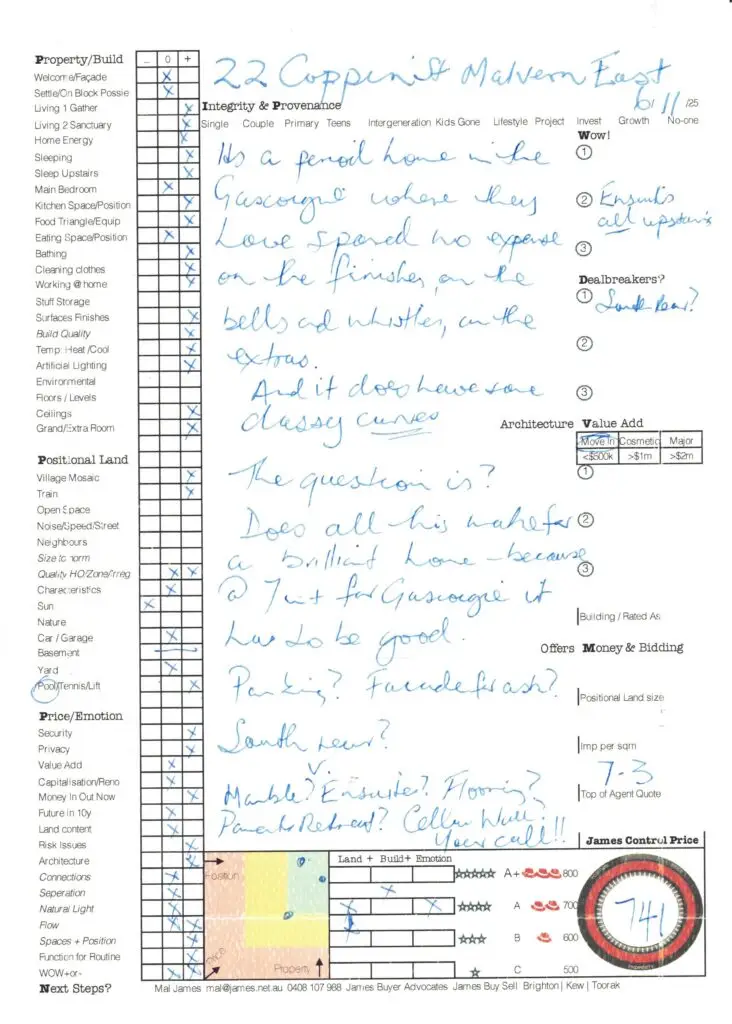 Property/Build - 0 +
22 Coppin St Malvern East
6/11/25
Welcome/Façade
Settle/On Block Possie
Living 1 Gather
Living 2 Sanctuary
Home Energy
Sleeping
Sleep Upstairs
Main Bedroom
Kitchen Space/Position
Food Triangle/Equip
Eating Space/Position
Bathing
Cleaning clothes
Working @ home
Stuff Storage
Surfaces Finishes
Build Quality
Temp: Heat /Cool
Artificial Lighting
Environmental
Floors / Levels
Ceilings
Grand/Extra Room
Positional Land
Village Mosaic
Train
Open Space
Noise/Speed/Street
Neighbours
Size to norm
Quality HO/Zone/Irreg
Characteristics
Sun
Nature
Car / Garage
Basement
Yard
Pool/Tennis/Lift
Price/Emotion
Security
Privacy
Value Add
Capitalisation/Reno
Money In Out Now
Future in 10y
Land content
Risk Issues
Architecture
Connections
Seperation
Natural Light
Flow
Spaces + Position
Function for Routine
WOW+or-
Next Steps?
Integrity & Provenance
Single Couple Primary Teens Intergeneration Kids Gone Lifestyle Project Invest Growth No-one
Its a period home in the
Gascoigne where they
have spared no expense
on the finishes, on the
bells and whistles, on the
extras.
And it does have some
classy curves
The question is?
Does all this make for
a brilliant home - because
@ 7m+ for Gascoigne it
has to be good.
Parking? Facade fresh?
South rear?
Marble? V. Ensuites? Flooring?
Parents Retreat? Cellar Wall?
Your call!!
Wow!
1
2 Ensuites
all upstairs
3
Dealbreakers?
1 South Rear?
2
3
Architecture Value Add
Move In Cosmetic Major
<$500k >$1m >$2m
1
2
3
Building / Rated As
Offers Money & Bidding
Positional Land size
Imp per sqm
7-3
Top of Agent Quote
James Control Price
741
Position
Property
Land + Build+ Emotion
A+ 800
A 700
B 600
C 500
Mal James mal@james.net.au 0408 107 988 James Buyer Advocates James Buy Sell Brighton | Kew | Toorak